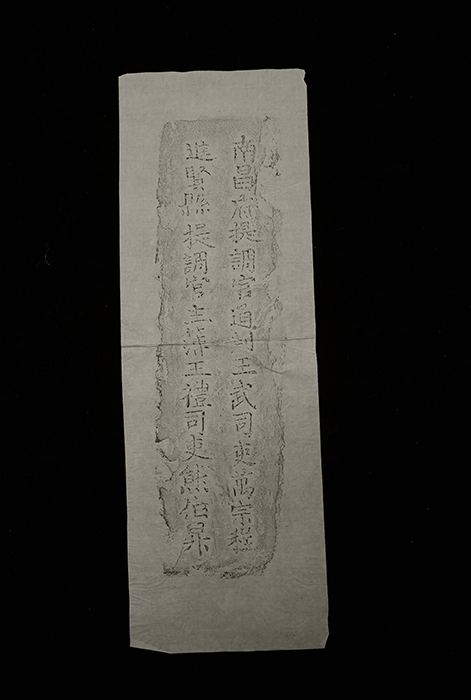 南昌府提調官通判王武司吏萬宗程
進賢縣提調官主簿王禮司吏熊伯昇